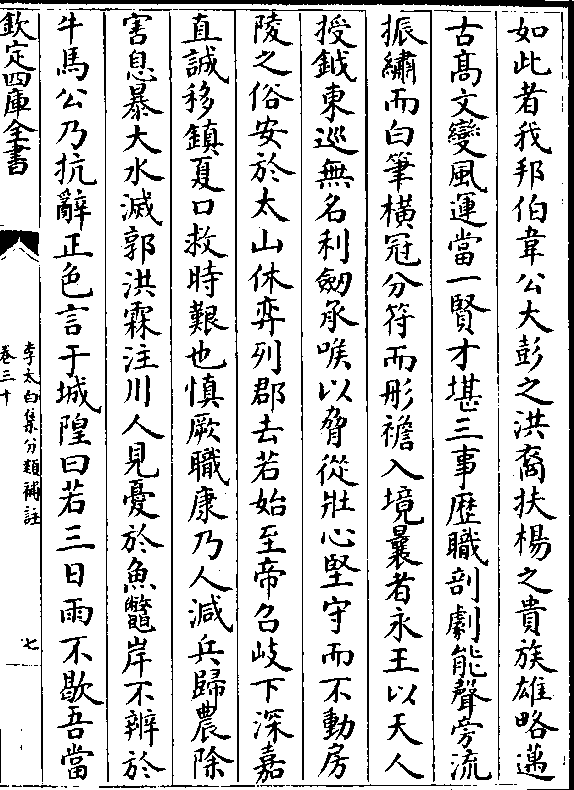 如此者我邦伯韋公大彭之洪裔扶楊之貴族雄略邁
古髙文變風運當一賢才堪三事歴職剖劇能聲旁流
振繡而白筆橫冠分符而彤襜入境曩者永王以天人
授鉞東巡無名利劒承喉以脅從壯心堅守而不動房
陵之俗安於太山休弈列郡去若始至帝召岐下深嘉
直誠移鎮夏口救時艱也慎厥職康乃人減兵歸農除
害息暴大水滅郭洪霖注川人見憂於魚鼈岸不辨於
牛馬公乃抗辭正色言于城隍曰若三日雨不歇吾當
欽定四庫全書
李太白集分類補註
卷三十
七